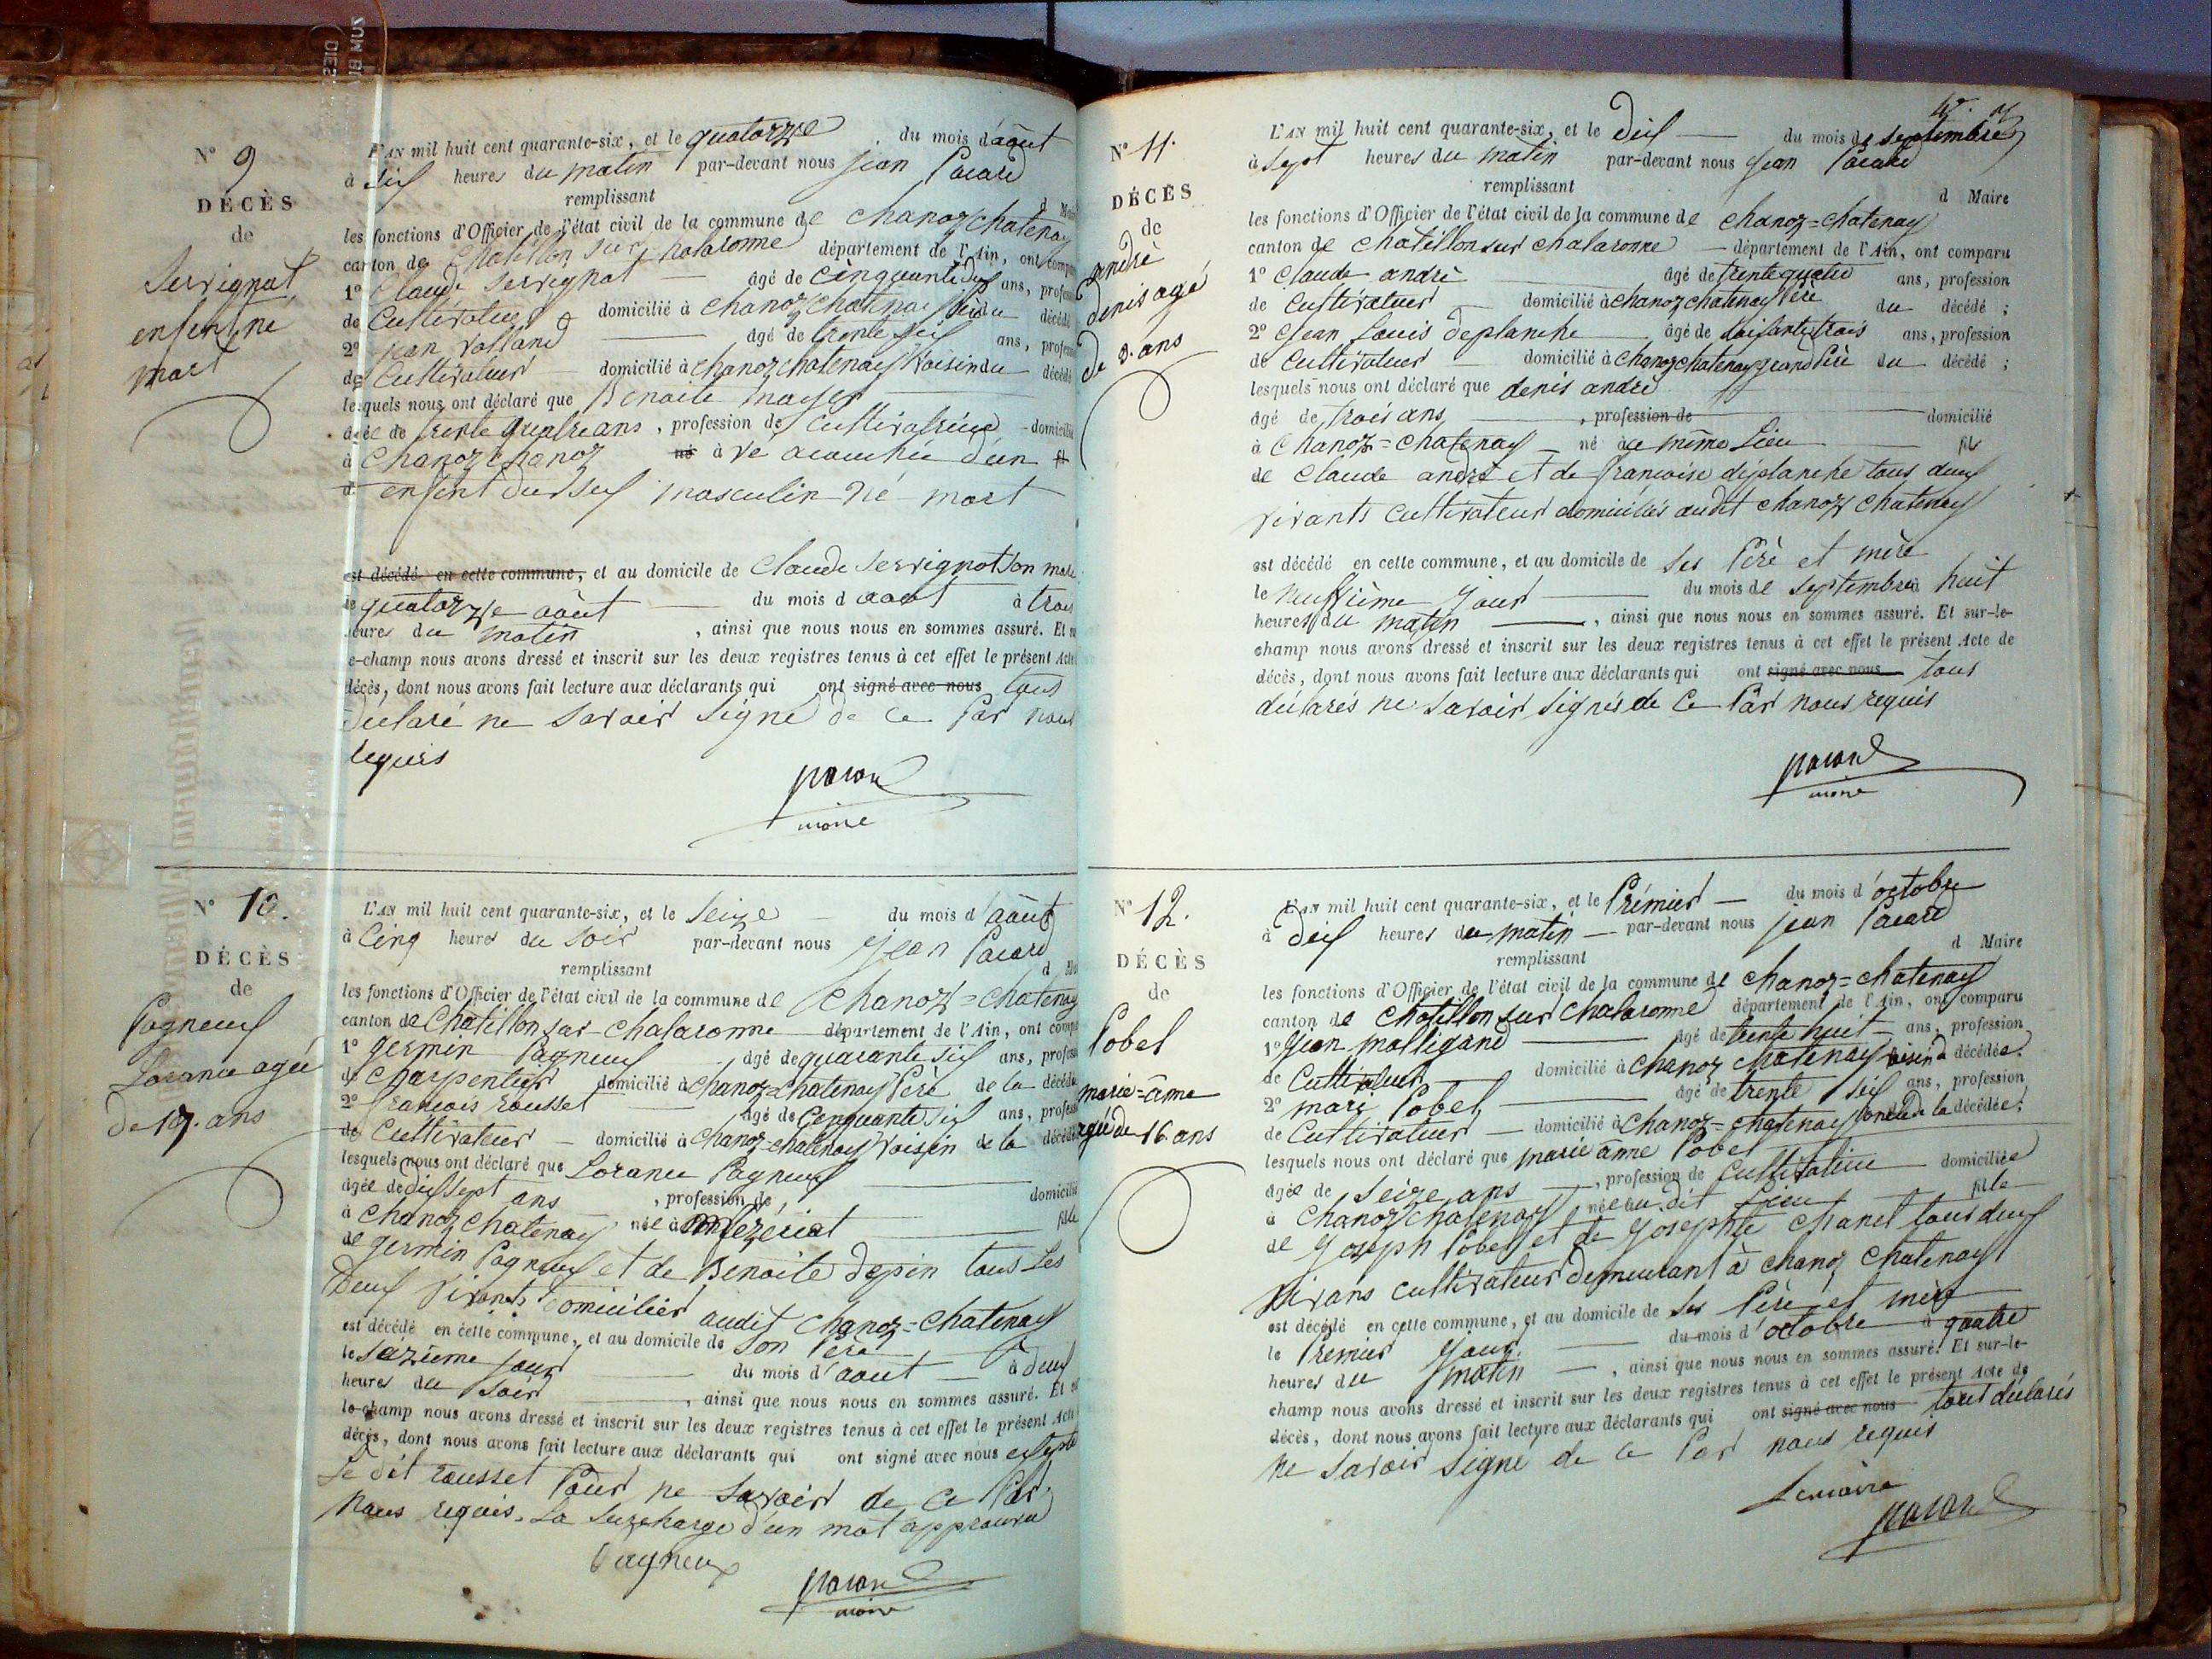 N° 9
DÉCÈS
de
Servignat
enfent né
mort
L'AN mil huit cent quarante-six, et le quatorze du mois d'août
à dix heures du matin par-devant nous jean Pacard
remplissant d
les fonctions d'Officier de l'état civil de la commune de chanoz chatenay
canton de chatillon sur chalaronne département de l'Ain, ont
1° Claude Servignat âgé de cinquante dix ans,
de Cultivateur domicilié à chanoz chatenay Père du décédé
2° jean rolland âgé de trente six ans,
de Cultivateur domicilié à chanoz chatenay Voisin du décédé
lesquels nous ont déclaré que Benoite moyer
agée de trente quatre ans, profession de Cultivatrice
à chanoz chanoz né à ré acouchée d'un
d enfent du sex masculin né mort
est décédé en cette commune, et au domicile de Claude Servignat son
le quatorze août du mois d août à trois
heures du matin, ainsi que nous nous en sommes assuré. Et
le-champ nous avons dressé et inscrit sur les deux registres tenus à cet effet le présent Acte
décès, dont nous avons fait lecture aux déclarants qui ont signé avec nous tous
déclaré ne savoir signé de ce Par nous
requis
pacard
maire
N° 10.
DÉCÈS
de
Pagneux
Lorance agée
de 17. ans
L'AN mil huit cent quarante-six, et le seize du mois d'août
à Cinq heures du soir par-devant nous jean Pacard
remplissant d
les fonctions d'Officier de l'état civil de la commune de chanoz=chatenay
canton de Chatillon sur chalaronne département de l'Ain, ont
1° germin Pagneux âgé de quarante six ans,
de charpentier domicilié à chanoz=chatenay Père de la
2° francois rousset âgé de Cenquante six ans,
de Cultivateur domicilié à chanoz-chatenay Voisin de la
lesquels nous ont déclaré que Lorance Pagneux
agée de dix sept ans, profession de, domicilié
à Chanoz chatenay née à mezeriat fille
de germin Pagneux et de Benoite depin tous Les
deux Vivants domiciliés audit chanoz=chatenay
est décédé en cette commune, et au domicile de son Père
le sezieme jour du mois d'aout à deux
heures du soir, ainsi que nous nous en sommes assuré. Et
le-champ nous avons dressé et inscrit sur les deux registres tenus à cet effet le présent Acte
décès, dont nous avons fait lecture aux déclarants qui ont signé avec nous exsepté
Le dit rousset Pour ne savoir de ce Par
nous requis. La surcharge d'un mot approuvé
Pagneux
pacard
maire
N° 11.
DÉCÈS
de
andrè
denis agé
de 3. ans
L'AN mil huit cent quarante-six, et le dix du mois de septembre
à sept heures du matin par-devant nous jean Pacard
remplissant d Maire
les fonctions d'Officier de l'état civil de la commune de chanoz=chatenay
canton de chatillon sur chalaronne département de l'Ain, ont comparu
1° Claude andrè âgé de trente quatre ans, profession
de Cultivateur domicilié à chanoz chatenay Père du décédé ;
2° Jean Louis deplanche âgé de soisante trois ans, profession
de Cultivateur domicilié à chanoz chatenay grand Père du décédé ;
lesquels nous ont déclaré que denis andrè
agé de trois ans, profession de domicilié
à chanoz=chatenay né au même Lieu fils
de Claude andrè et de francoise deplanche tous deux
vivants cultivateur domiciliés audit chanoz chatenay
est décédé en cette commune, et au domicile de ses Père et mère
le neuffième jour du mois de septembre à huit
heures du matin, ainsi que nous nous en sommes assuré. Et sur-le-
champ nous avons dressé et inscrit sur les deux registres tenus à cet effet le présent Acte de
décès, dont nous avons fait lecture aux déclarants qui ont signé avec nous tous
déclarés ne savoir signés de ce Par nous requis
pacard
maire
N° 12.
DÉCÈS
de
Pobel
marie=anne
agée de 16 ans
L'AN mil huit cent quarante-six, et le Prémier du mois d'octobre
à dix heures du matin par-devant nous jean Pacard
remplissant d Maire
les fonctions d'Officier de l'état civil de la commune de chanoz=chatenay
canton de chatillon sur chalaronne département de l'Ain, ont comparu
1° Jean malligand âgé de trente huit ans, profession
de Cultivateur domicilié à chanoz chatenay voisin d décédée.
2° mari Pobel âgé de trente six ans, profession
de Cultivateur domicilié à chanoz=chatenay oncle de la décédée;
lesquels nous ont déclaré que marie anne Pobel
agée de seize ans, profession de Cultivatrice domiciliée
à chanoz chatenay née au dit Lieu fille
de Joseph Pobel et de Josephte chanel tous deux
vivans cultivateur demeurant à chanoz chatenay
est décédé en cette commune, et au domicile de ses Père et mère
le Premier Jour du mois d'octobre à quatre
heures du matin, ainsi que nous nous en sommes assuré. Et sur-le-
champ nous avons dressé et inscrit sur les deux registres tenus à cet effet le présent Acte de
décès, dont nous avons fait lecture aux déclarants qui ont signé avec nous tous déclarés
ne savoir signé de ce Par nous requis
Le maire
pacard